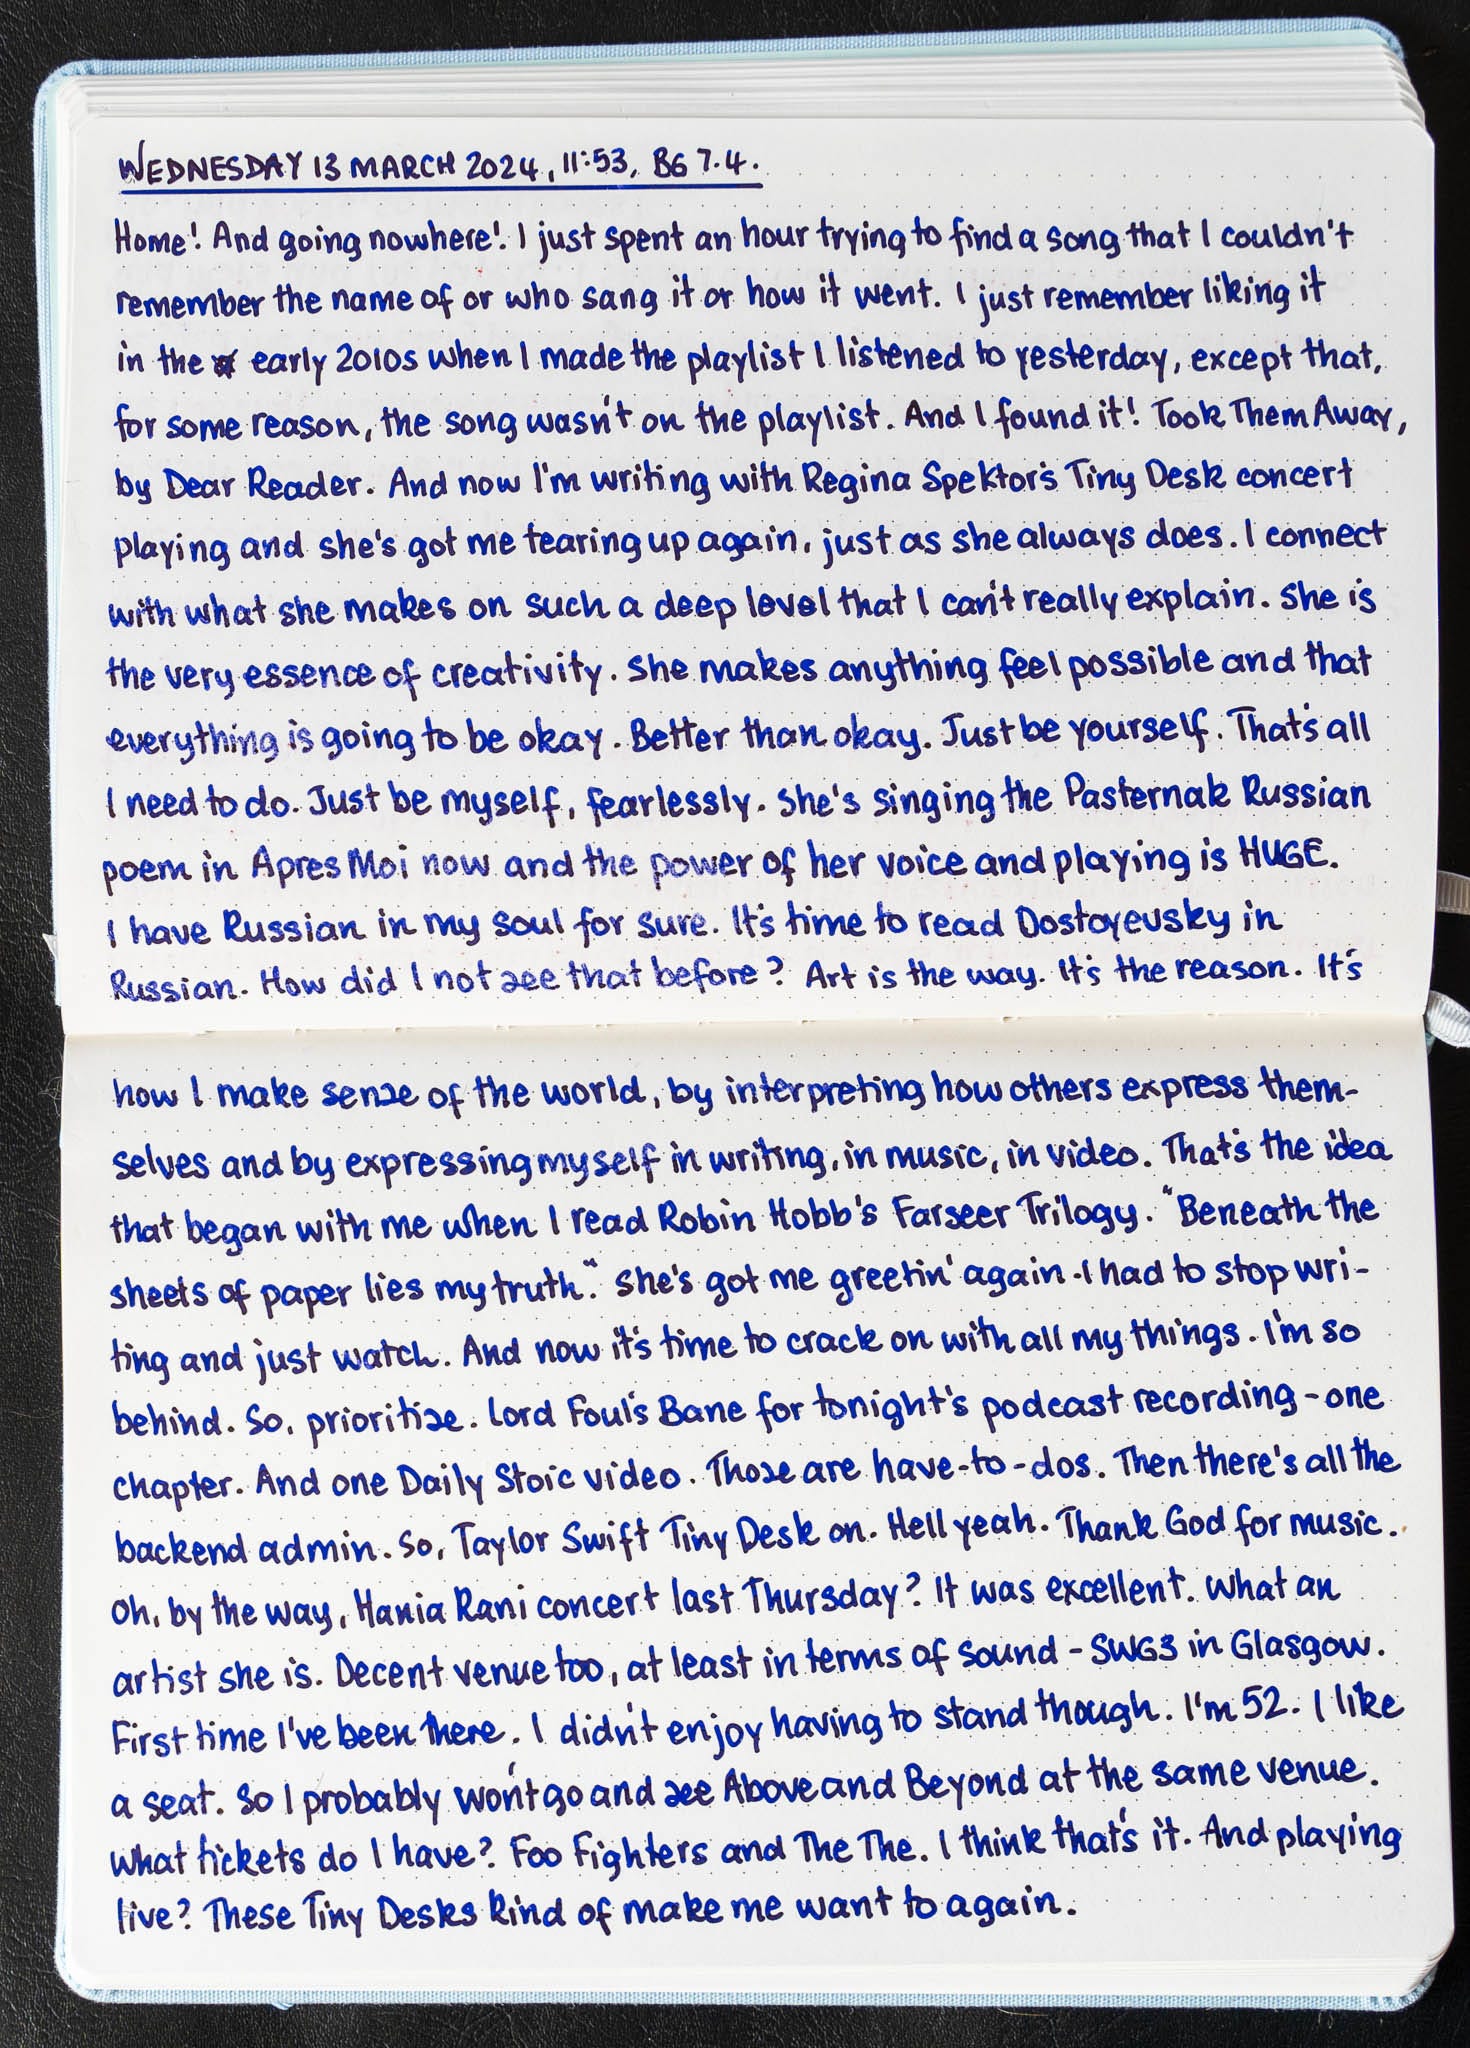 WEDNESDAY 13 MARCH 2024, 11:53, BG 7.4.
Home! And going nowhere! I just spent an hour trying to find a song that I couldn't
remember the name of or who sang it or how it went. I just remember liking it
in the early 2010s when I made the playlist I listened to yesterday, except that,
for some reason, the song wasn't on the playlist. And I found it! Took Them Away,
by Dear Reader. And now I'm writing with Regina Spektor's Tiny Desk concert
playing and she's got me tearing up again, just as she always does. I connect
with what she makes on such a deep level that I can't really explain. She is
the very essence of creativity. She makes anything feel possible and that
everything is going to be okay. Better than okay. Just be yourself. That's all
I need to do. Just be myself, fearlessly. She's singing the Pasternak Russian
poem in Apres Moi now and the power of her voice and playing is HUGE.
I have Russian in my soul for sure. It's time to read Dostoyevsky in
Russian. How did I not see that before? Art is the way. It's the reason. It's
how I make sense of the world, by interpreting how others express them-
selves and by expressing myself in writing, in music, in video. That's the idea
that began with me when I read Robin Hobb's Farseer Trilogy. "Beneath the
sheets of paper lies my truth." She's got me greetin' again. I had to stop wri-
ting and just watch. And now it's time to crack on with all my things. I'm so
behind. So, prioritise. Lord Foul's Bane for tonight's podcast recording - one
chapter. And one Daily Stoic video. Those are have-to-dos. Then there's all the
backend admin. So, Taylor Swift Tiny Desk on. Hell yeah. Thank God for music.
Oh, by the way, Hania Rani concert last Thursday? It was excellent. What an
artist she is. Decent venue too, at least in terms of sound - SWG3 in Glasgow.
First time I've been there. I didn't enjoy having to stand though. I'm 52. I like
a seat. So I probably won't go and see Above and Beyond at the same venue.
What tickets do I have? Foo Fighters and The The. I think that's it. And playing
live? These Tiny Desks kind of make me want to again.